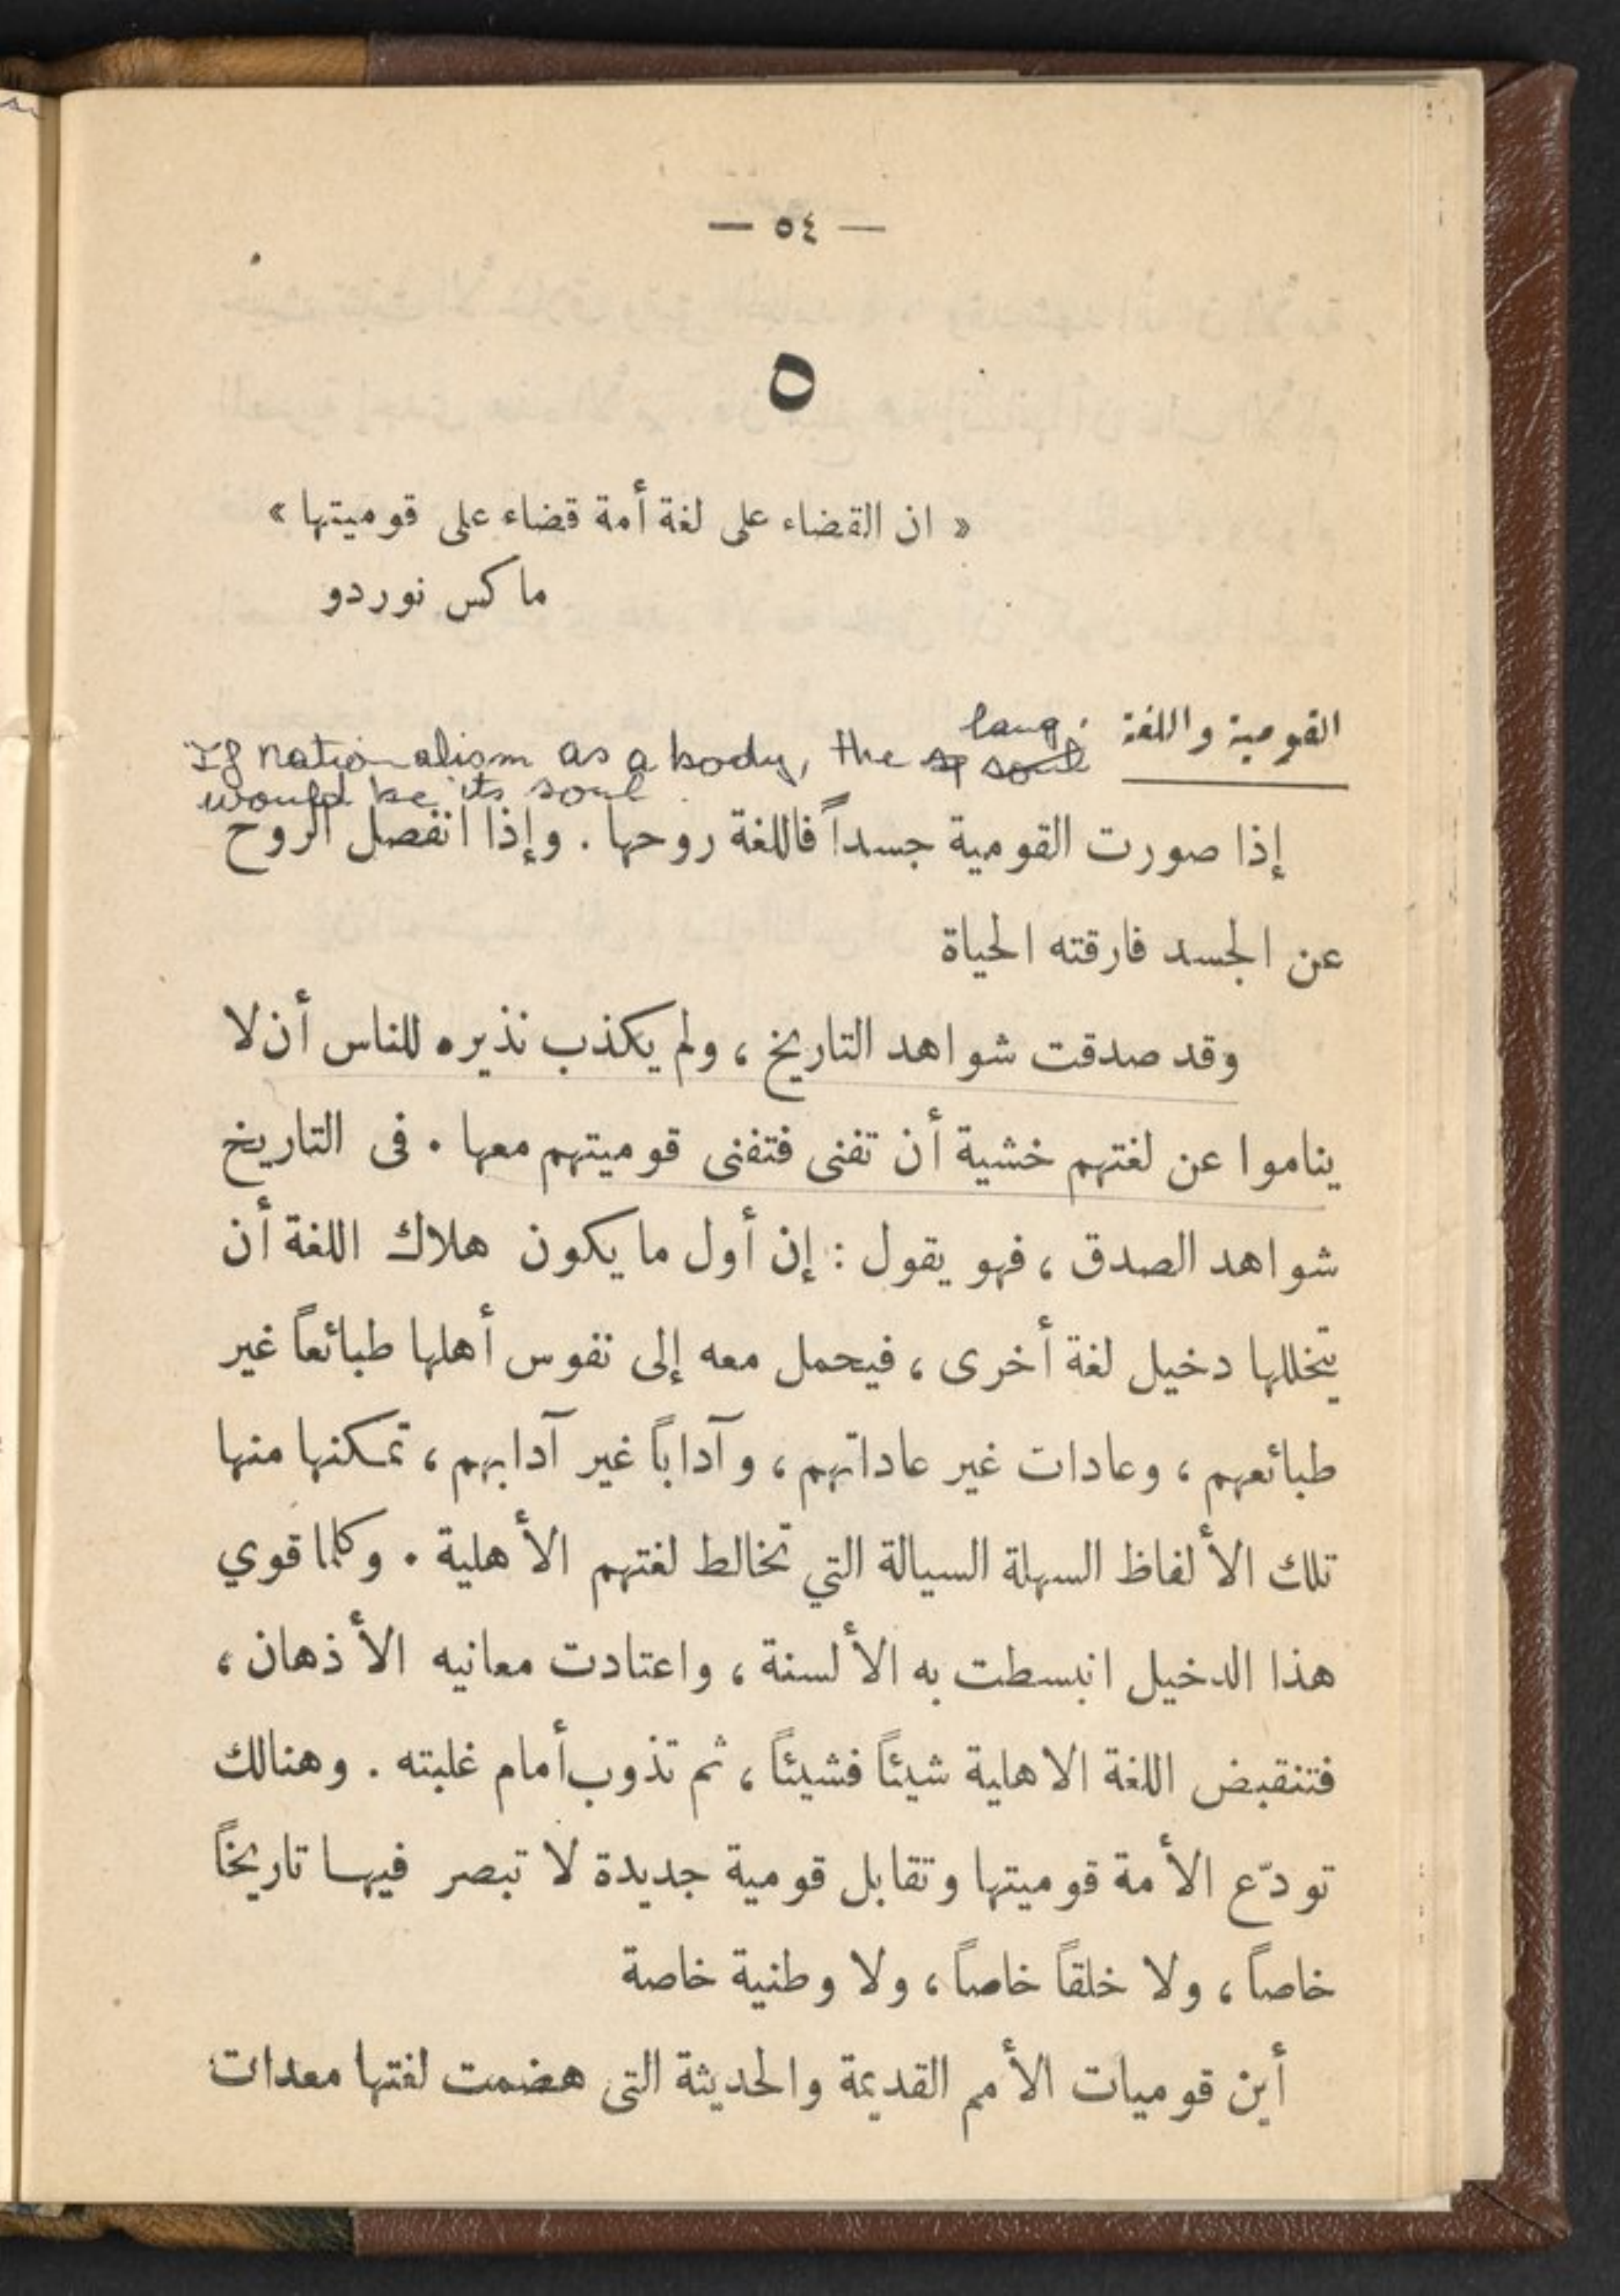 — ٥٤ —
٥
« ان القضاء على لغة أمة قضاء على قوميتها »
ماكس نوردو
القومية واللغة
lang.
If nationalism as a body, the sp soul
would be its soul
إذا صورت القومية جسداً فاللغة روحها . وإذا انفصل الروح
عن الجسد فارقته الحياة
وقد صدقت شواهد التاريخ ، ولم يكذب نذيره للناس أن لا
يناموا عن لغتهم خشية أن تفنى فتفنى قوميتهم معها . فى التاريخ
شواهد الصدق ، فهو يقول : إن أول ما يكون هلاك اللغة أن
يتخللها دخيل لغة أخرى ، فيحمل معه إلى نفوس أهلها طبائعاً غير
طبائعهم ، وعادات غير عاداتهم ، وآداباً غير آدابهم ، تمكنها منها
تلك الألفاظ السهلة السيالة التي تخالط لغتهم الأهلية . وكلما قوي
هذا الدخيل انبسطت به الألسنة ، واعتادت معانيه الأذهان ،
فتنقبض اللغة الاهلية شيئاً فشيئاً ، ثم تذوب أمام غلبته . وهنالك
تودّع الأمة قوميتها وتقابل قومية جديدة لا تبصر فيها تاريخاً
خاصاً ، ولا خلقاً خاصاً ، ولا وطنية خاصة
أين قوميات الأمم القديمة والحديثة التى هضمت لغتها معدات